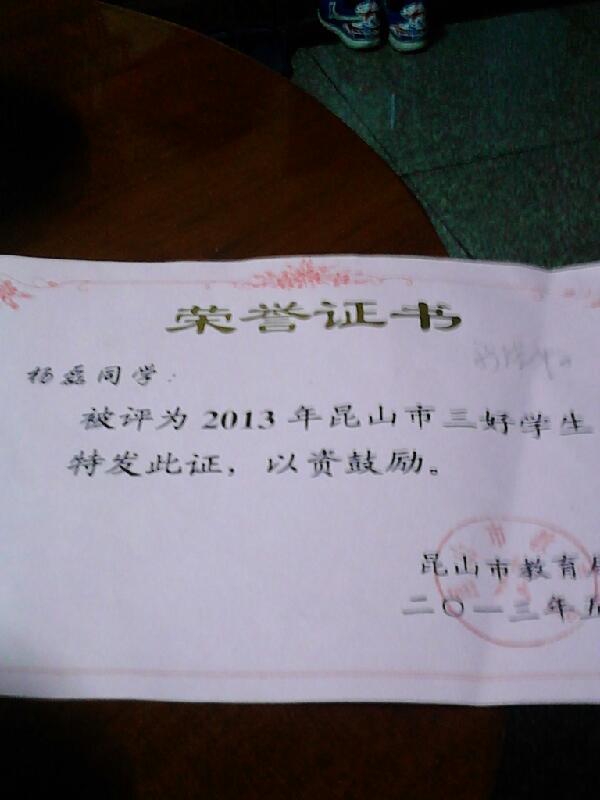 荣誉证书
杨磊同学：
被评为 2013 年昆山市三好学生
特发此证，以资鼓励。
昆山市教育局
二〇一三年五